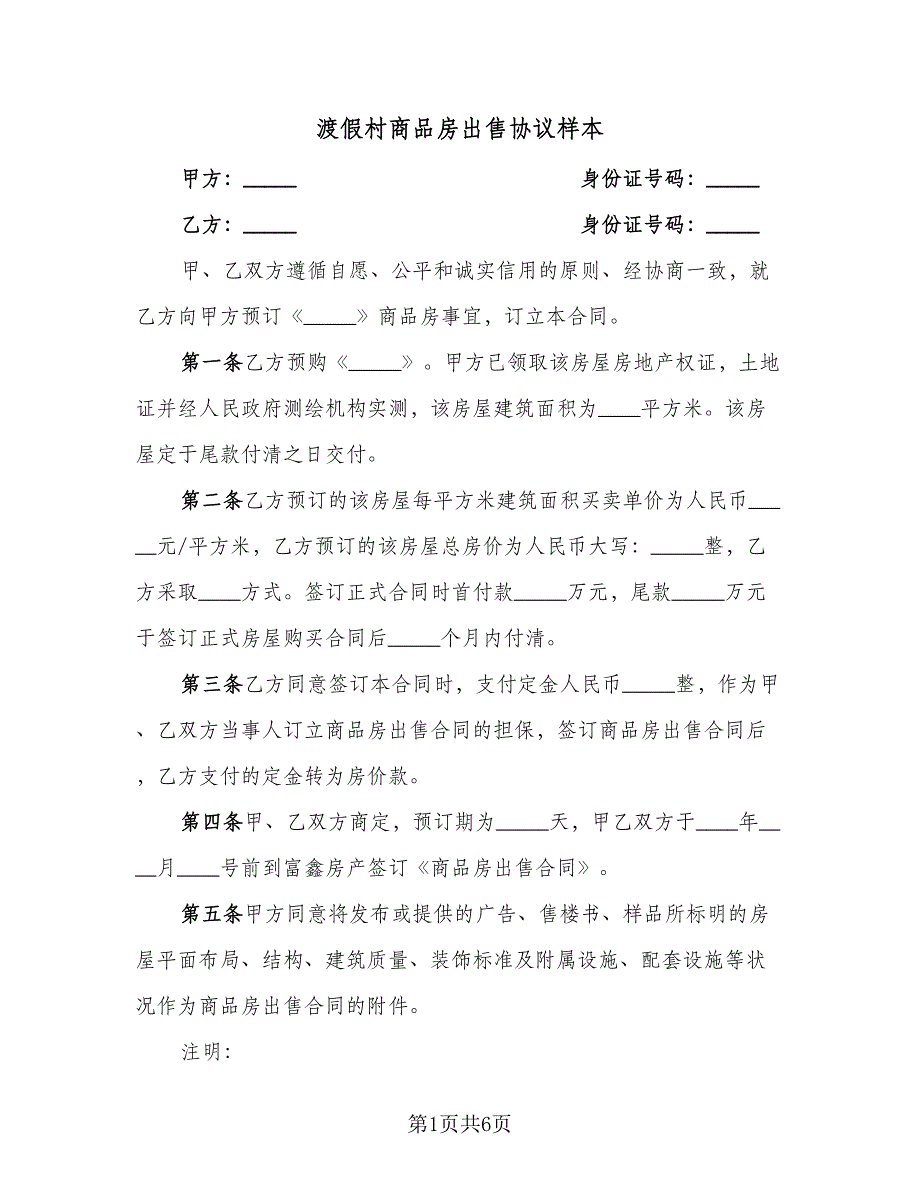 渡假村商品房出售协议样本
甲方：_____ 身份证号码：_____
乙方：_____ 身份证号码：_____
甲、乙双方遵循自愿、公平和诚实信用的原则、经协商一致，就
乙方向甲方预订《_____》商品房事宜，订立本合同。
第一条乙方预购《_____》。甲方已领取该房屋房地产权证，土地
证并经人民政府测绘机构实测，该房屋建筑面积为____平方米。该房
屋定于尾款付清之日交付。
第二条乙方预订的该房屋每平方米建筑面积买卖单价为人民币___
__元/平方米，乙方预订的该房屋总房价为人民币大写：_____整，乙
方采取____方式。签订正式合同时首付款_____万元，尾款_____万元
于签订正式房屋购买合同后_____个月内付清。
第三条乙方同意签订本合同时，支付定金人民币_____整，作为甲
、乙双方当事人订立商品房出售合同的担保，签订商品房出售合同后
，乙方支付的定金转为房价款。
第四条甲、乙双方商定，预订期为_____天，甲乙双方于____年__
__月____号前到富鑫房产签订《商品房出售合同》。
第五条甲方同意将发布或提供的广告、售楼书、样品所标明的房
屋平面布局、结构、建筑质量、装饰标准及附属设施、配套设施等状
况作为商品房出售合同的附件。
注明：
第1页共6页